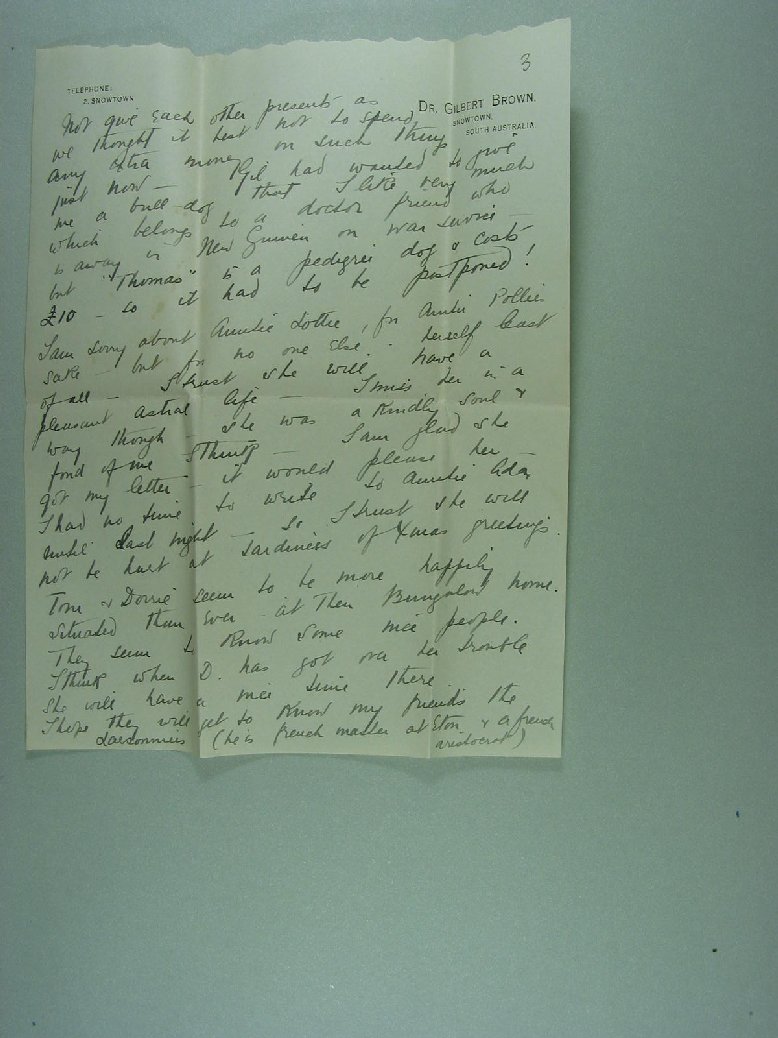 3
TELEPHONE:
2, SNOWTOWN
DR. GILBERT BROWN.
SNOWTOWN,
SOUTH AUSTRALIA
Not give each other presents as
we thought it best not to spend
any extra money on such things
just now — Gil had wanted to give
me a bull-dog that I like very much
which belongs to a doctor friend who
is away in New Guinea on war service —
but "Thomas" is a pedigree dog & costs
£10 — so it had to be postponed!
I am sorry about Auntie Lottie, for Auntie Pollies
sake — but for no one else — herself least
of all — I trust she will have a
pleasant astral life — I miss her in a
way though — she was a kindly soul &
fond of me I think — I am glad she
got my letter — it would please her —
I had no time to write to Auntie Ada
until last night — so I trust she will
not be hurt at tardiness of Xmas greetings.
Tom & Dorrie seem to be more happily
situated than ever — at their Bungalow home.
They seem to know some nice people.
I think when D. has got over her trouble
she will have a nice time there
I hope they will get to know my friends the
(he is french master at Eton, & a french
aristocrat)